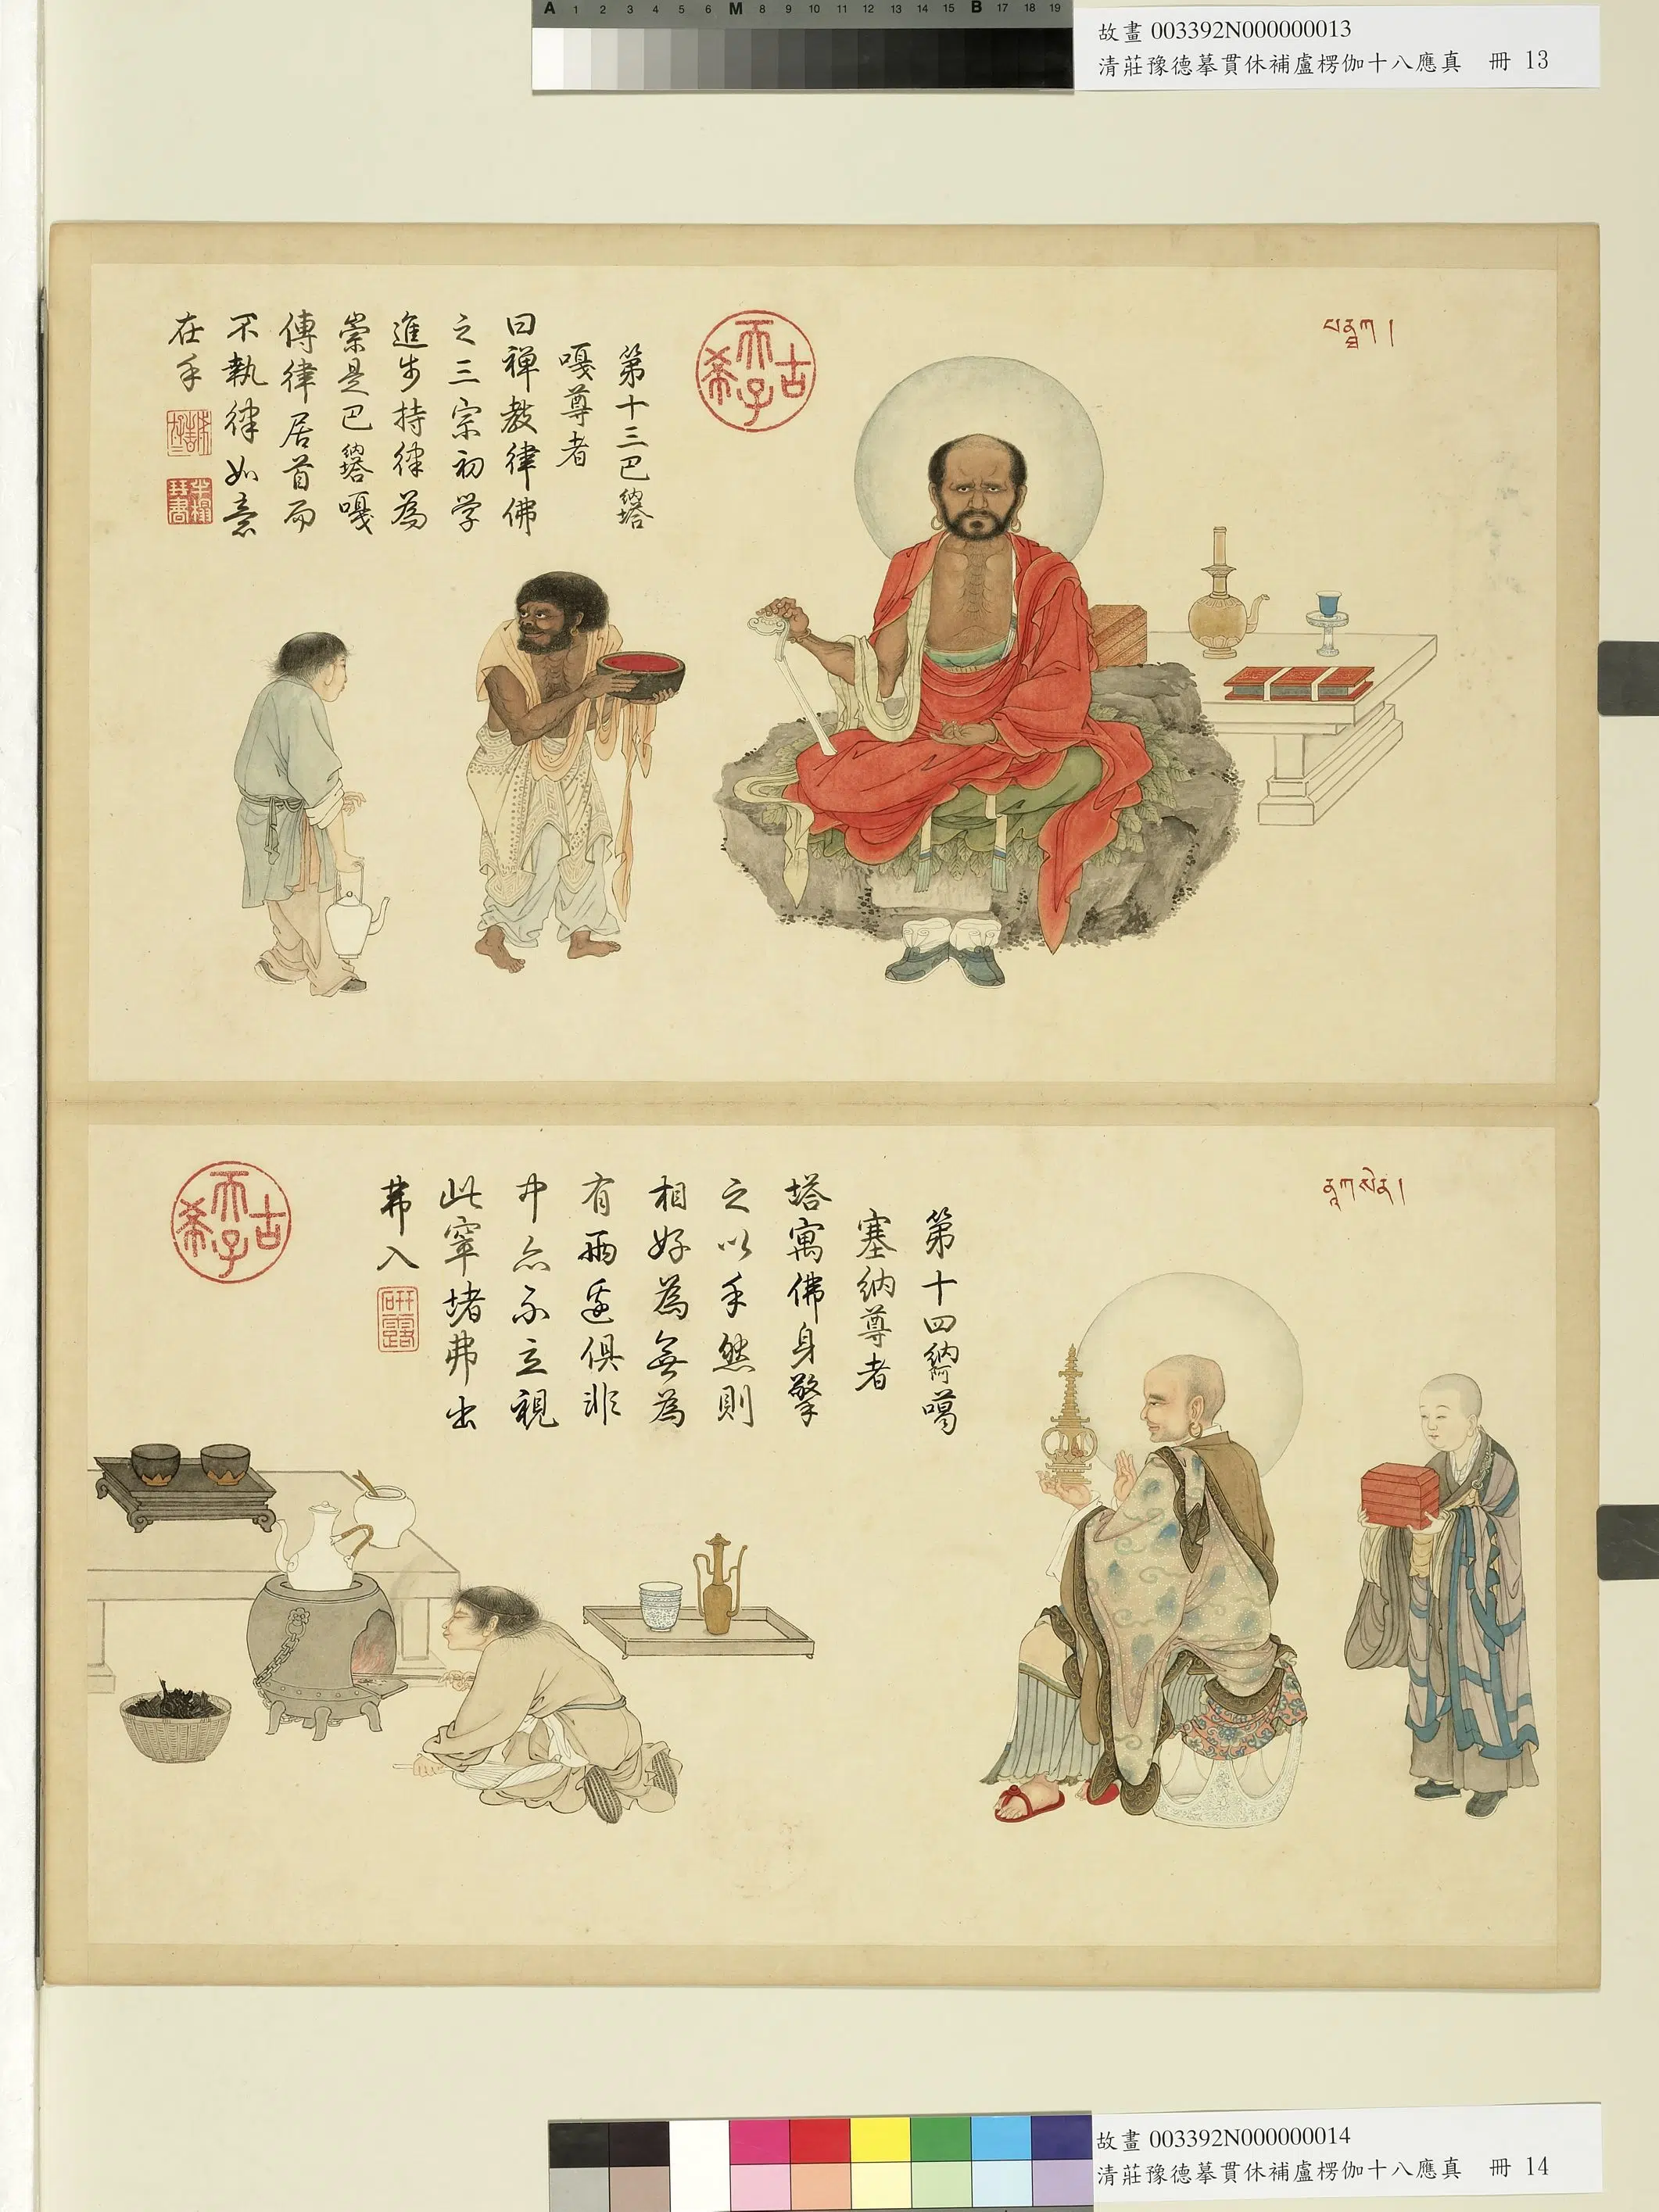 A 1 2 3 4 5 6 M 8 9 10 11 12 13 14 15 B 17 18 19
故畫 003392N000000013
清莊豫德摹貫休補盧楞伽十八應真 冊 13
པནྠཀ །
古
希
天
子
第十三巴納塔
嘎尊者
曰禅教律佛
之三宗初学
進步持律為
崇是巴納塔嘎
傳律居首而
不執律如意
在手
ནཱཀསེན །
第十四納阿噶
塞納尊者
塔寓佛身擎
之以手然則
相好為無為
有兩邊俱非
中亦不立視
此窣堵弗出
弗入
古
希
天
子
研露
故畫 003392N000000014
清莊豫德摹貫休補盧楞伽十八應真 冊 14